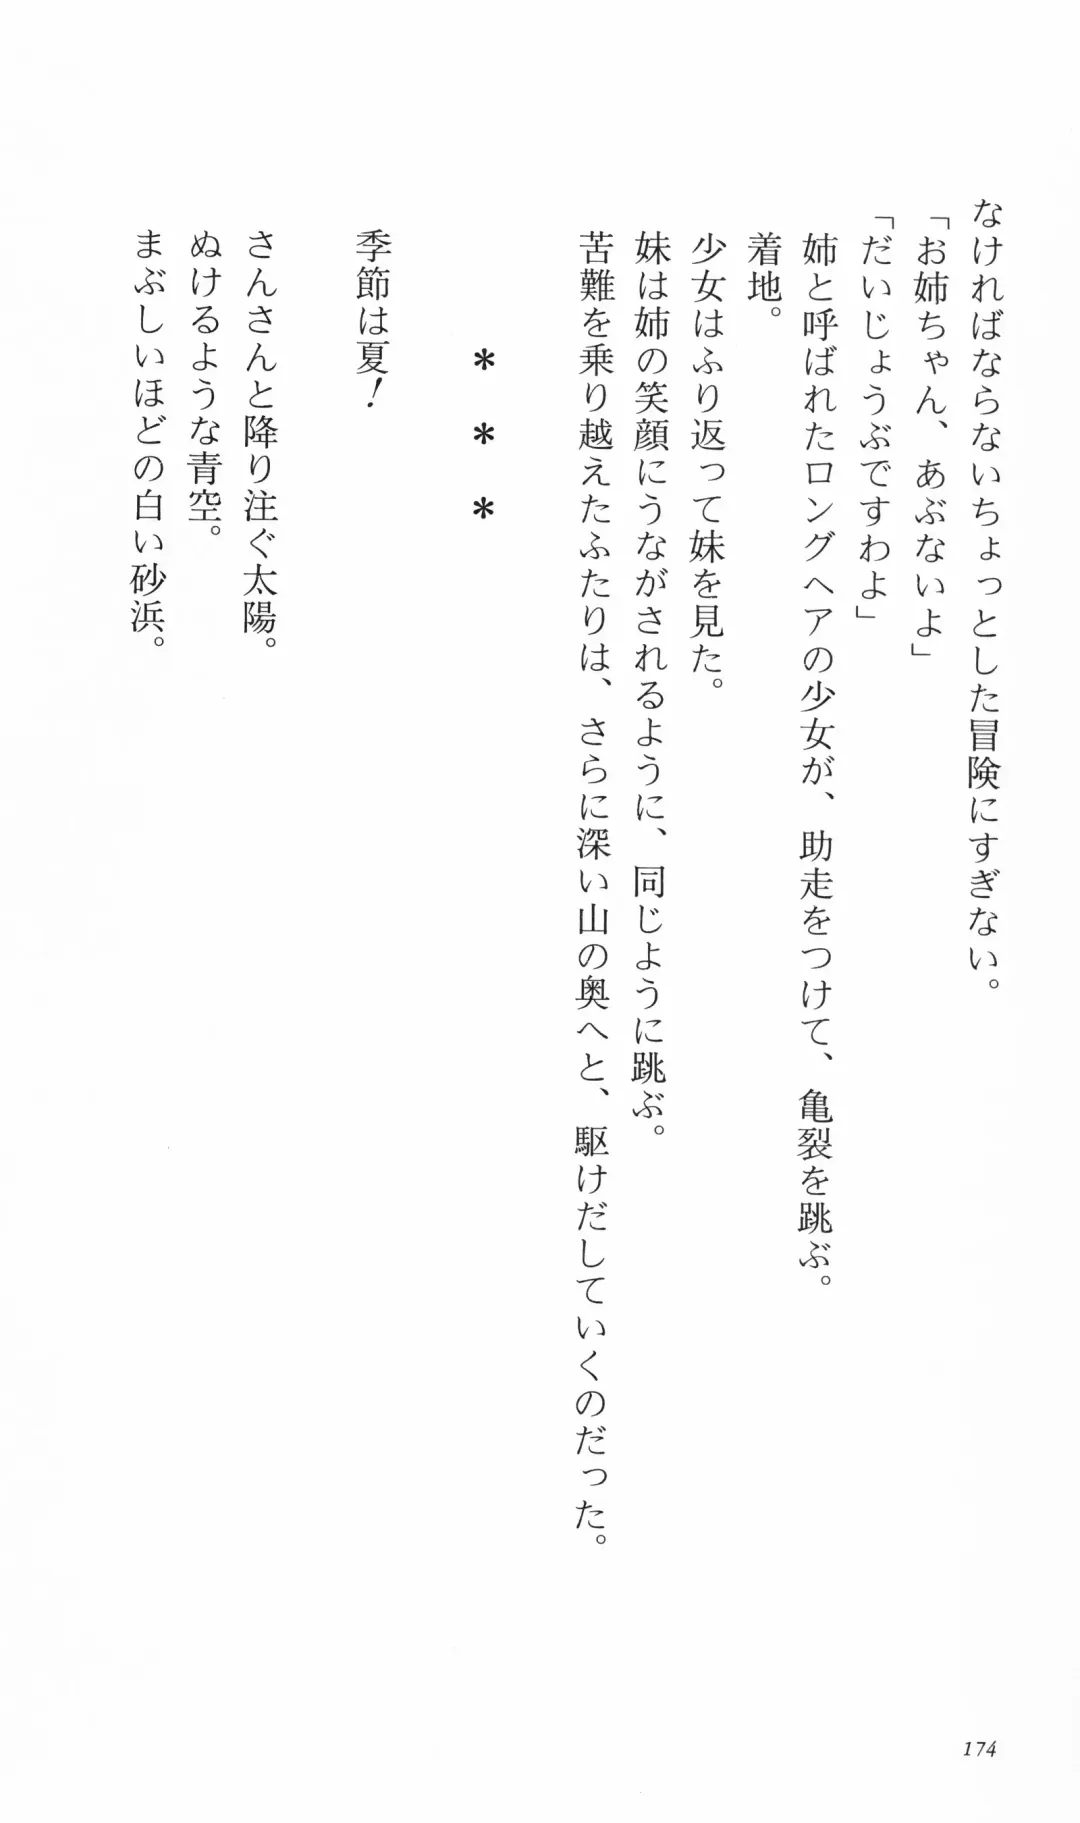 なければならないちょっとした冒険にすぎない。
「お姉ちゃん、あぶないよ」
「だいじょうぶですわよ」
姉と呼ばれたロングヘアの少女が、助走をつけて、亀裂を跳ぶ。
着地。
少女はふり返って妹を見た。
妹は姉の笑顔にうながされるように、同じように跳ぶ。
苦難を乗り越えたふたりは、さらに深い山の奥へと、駆けだしていくのだった。
＊　＊　＊
季節は夏！
さんさんと降り注ぐ太陽。
ぬけるような青空。
まぶしいほどの白い砂浜。
174